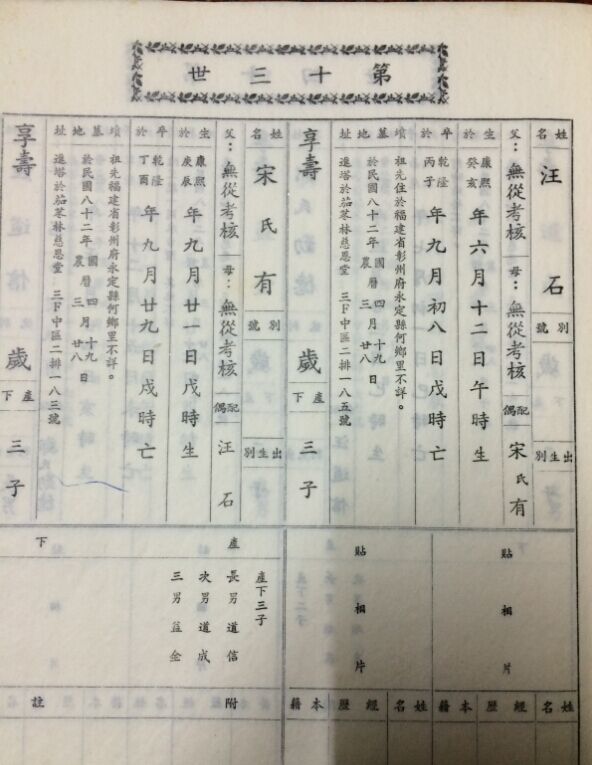 第十三世
姓名 汪石
別號
出生別
父：無從考核 母：無從考核 配偶 宋氏有
生於 康熙癸亥 年六月十二日午時生
卒於 乾隆丙子 年九月初八日戌時亡
墳墓地址 祖先住於福建省彰州府永定縣何鄉里不詳。
於民國八十二年 國曆 四月 十九 日 農曆 三月 廿八
進塔於茄苳林慈恩堂 三F中區二排一八五號
享壽 歲 產下 三子
姓名 宋氏有
別號
出生別
父：無從考核 母：無從考核 配偶 汪石
生於 康熙庚辰 年九月廿一日戌時生
卒於 乾隆丁酉 年九月廿九日戌時亡
墳墓地址 祖先福建省彰州府永定縣何鄉里不詳。
於民國八十二年 國曆 四月 十九 日 農曆 三月 廿八
進塔於茄苳林慈恩堂 三F中區二排一八三號
享壽 歲 產下 三子
貼相片
貼相片
產下
產下三子
長男道信
次男道成
三男益金
姓名 經歷 本籍
姓名 經歷 本籍
附註